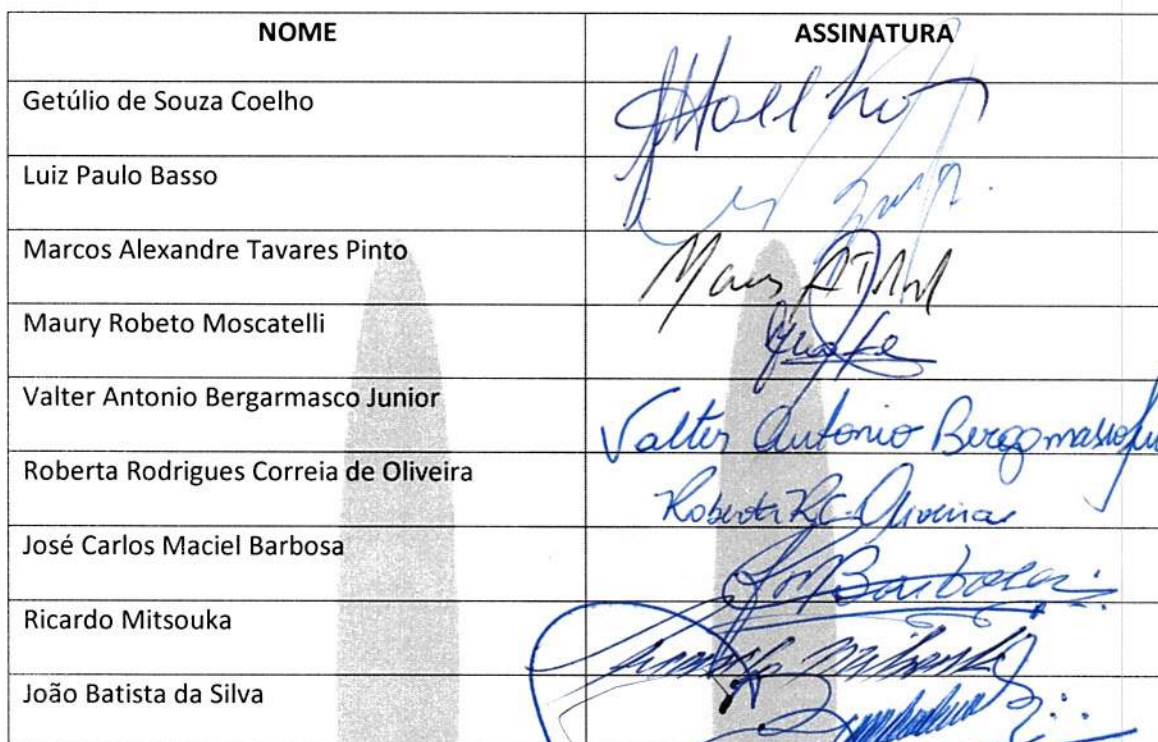 NOME ASSINATURA
Getúlio de Souza Coelho
Luiz Paulo Basso
Marcos Alexandre Tavares Pinto
Maury Robeto Moscatelli
Valter Antonio Bergarmasco Junior Valter Antonio Bergamasco
Roberta Rodrigues Correia de Oliveira Roberta RC Oliveira
José Carlos Maciel Barbosa Barbosa
Ricardo Mitsouka
João Batista da Silva